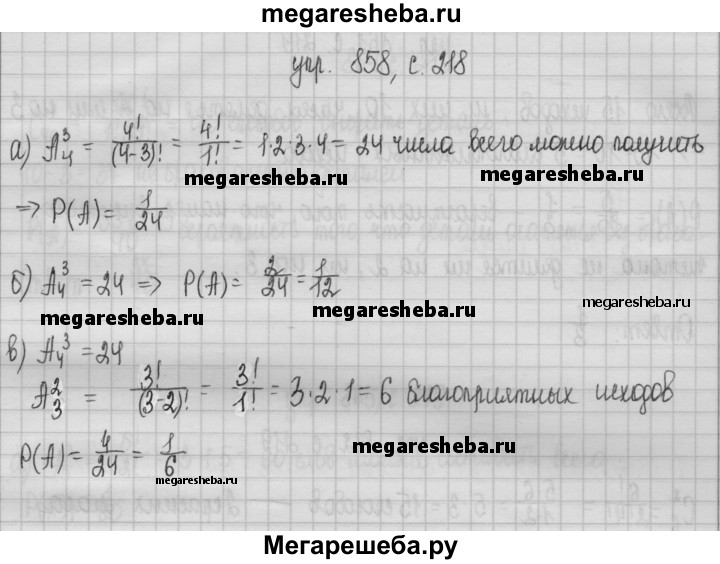 megaresheba.ru
упр. 858, с. 218
а) A₄³ = 4!/(4-3)! = 4!/1! = 1·2·3·4 = 24 числа всего можно получить
megaresheba.ru megaresheba.ru
=> P(A) = 1/24
б) A₄³ = 24 => P(A) = 2/24 = 1/12
megaresheba.ru
megaresheba.ru
megaresheba.ru
в) A₄³ = 24
A₃² = 3!/(3-2)! = 3!/1! = 3·2·1 = 6 благоприятных исходов
megaresheba.ru
P(A) = 4/24 = 1/6
megaresheba.ru
Мегарешеба.ру